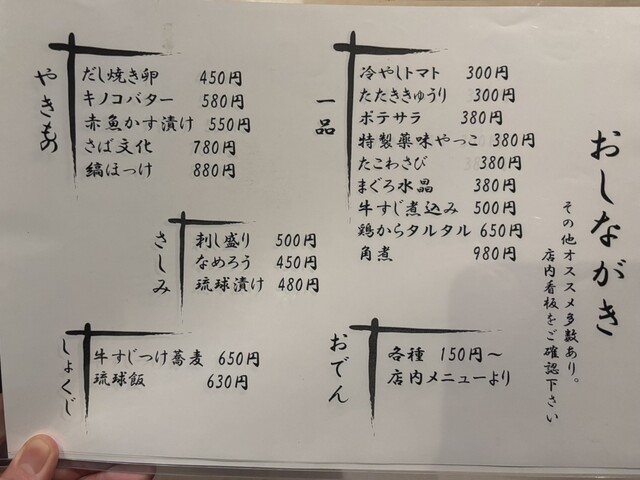 おしながき
その他オススメ多数あり。
店内看板をご確認下さい
一品
冷やしトマト 300円
たたききゅうり 300円
ポテサラ 380円
特製薬味やっこ 380円
たこわさび 380円
まぐろ水晶 380円
牛すじ煮込み 500円
鶏からタルタル 650円
角煮 980円
おでん
各種 150円～
店内メニューより
やきもの
だし焼き卵 450円
キノコバター 580円
赤魚かす漬け 550円
さば文化 780円
縞ほっけ 880円
さしみ
刺し盛り 500円
なめろう 450円
琉球漬け 480円
しょくじ
牛すじつけ蕎麦 650円
琉球飯 630円